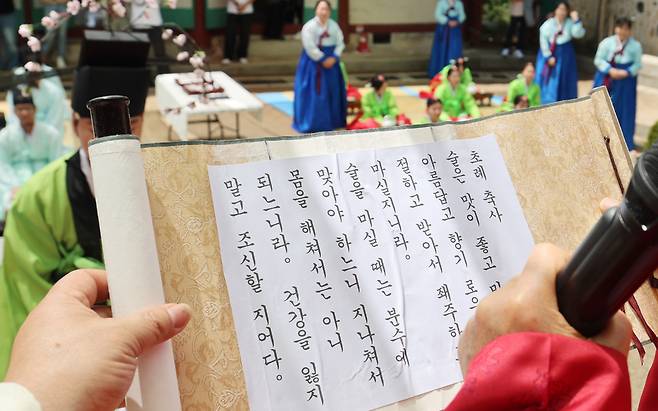 초례 축사
술은 맛이 좋고
아름답고 향기
절하고 받아서
마실지니라.
술을 마실 때는 분수에
맞아야 하느니 지나쳐서
몸을 해쳐서는 아니
되느니라. 건강을 잃지
말고 조신할 지어다.